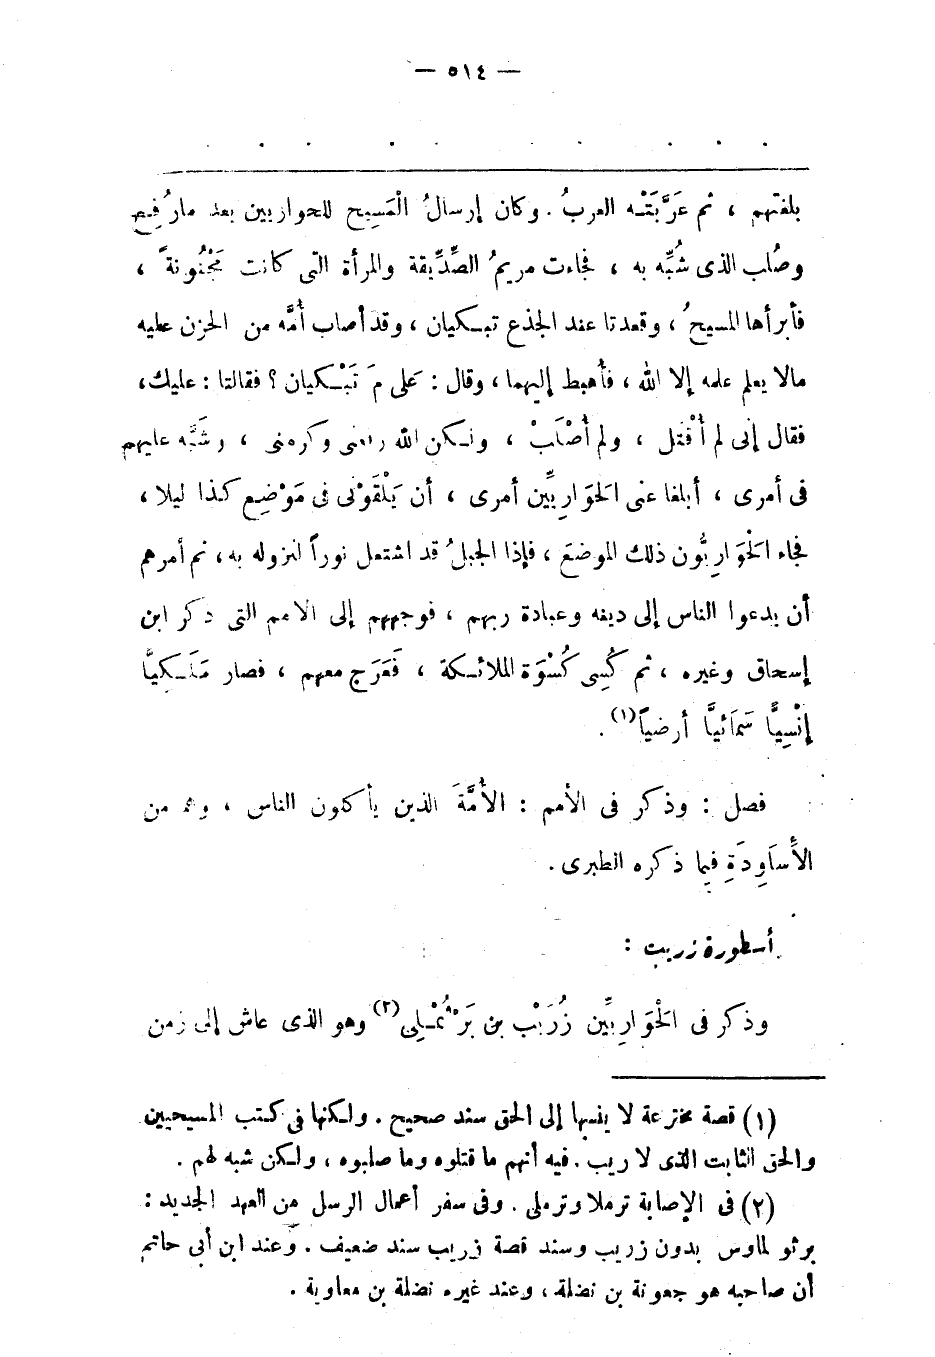 — ٥١٤ —
بلغتهم ، ثم عَرَّبَتْه العربُ . وكان إرسالُ الْمَسِيح للحواريين بعد مارُفِع
وصُلب الذى شُبِّه به ، فجاءت مريمُ الصِّدِّيقة والمرأة التى كانت مَجْنُونةً ،
فأبرأها المسيحُ ، وقعدتا عند الجذع تبكيان ، وقد أصاب أُمَّه من الحزن عليه
مالا يعلم علمه إلا الله ، فأهبط إليهما ، وقال : عَلى مَ تَبْكيان ؟ فقالتا : عليك ،
فقال إنى لم أُقْتل ، ولم أُصْلَبْ ، ولكن الله رفعنى وكرمنى ، وشَبَّه عليهم
فى أمرى ، أبلغا عنى الحَوَارِيِّين أمرى ، أن يَلْقَوْنى فى مَوْضِع كذا ليلا ،
فجاء الْحَوَارِيُّون ذلك الموضعَ ، فإذا الجبلُ قد اشتعل نوراً لنزوله به ، ثم أمرهم
أن يدعوا الناس إلى دينه وعبادة ربهم ، فوجههم إلى الأمم التى ذكر ابن
إسحاق وغيره ، ثم كُسِى كُسْوَة الملائكة ، فَعَرَج معهم ، فصار مَلَكيًّا
إنْسِيًّا سَمَائيًّا أرضياً(١) .
فصل : وذكر فى الأمم : الأُمَّةَ الذين يأكلون الناس ، وهم من
الأَسَاوِدَةِ فيما ذكره الطبرى .
أسطورة زريب :
وذكر فى الْحَوَارِيِّين زُرَيْب بن بَرْثُمْلى(٢) وهو الذى عاش إلى زمن
(١) قصة مخترعة لا ينسبها إلى الحق سند صحيح . ولكنها فى كتب المسيحيين
والحق الثابت الذى لا ريب . فيه أنهم ما قتلوه وما صلبوه ، ولكن شبه لهم .
(٢) فى الإصابة ترملا وترملى . وفى سفر أعمال الرسل من العهد الجديد :
برثو لماوس بدون زريب وسند قصة زريب سند ضعيف . وعند ابن أبى حاتم
أن صاحبه هو جعونة بن نضلة ، وعند غيره نضلة بن معاوية .